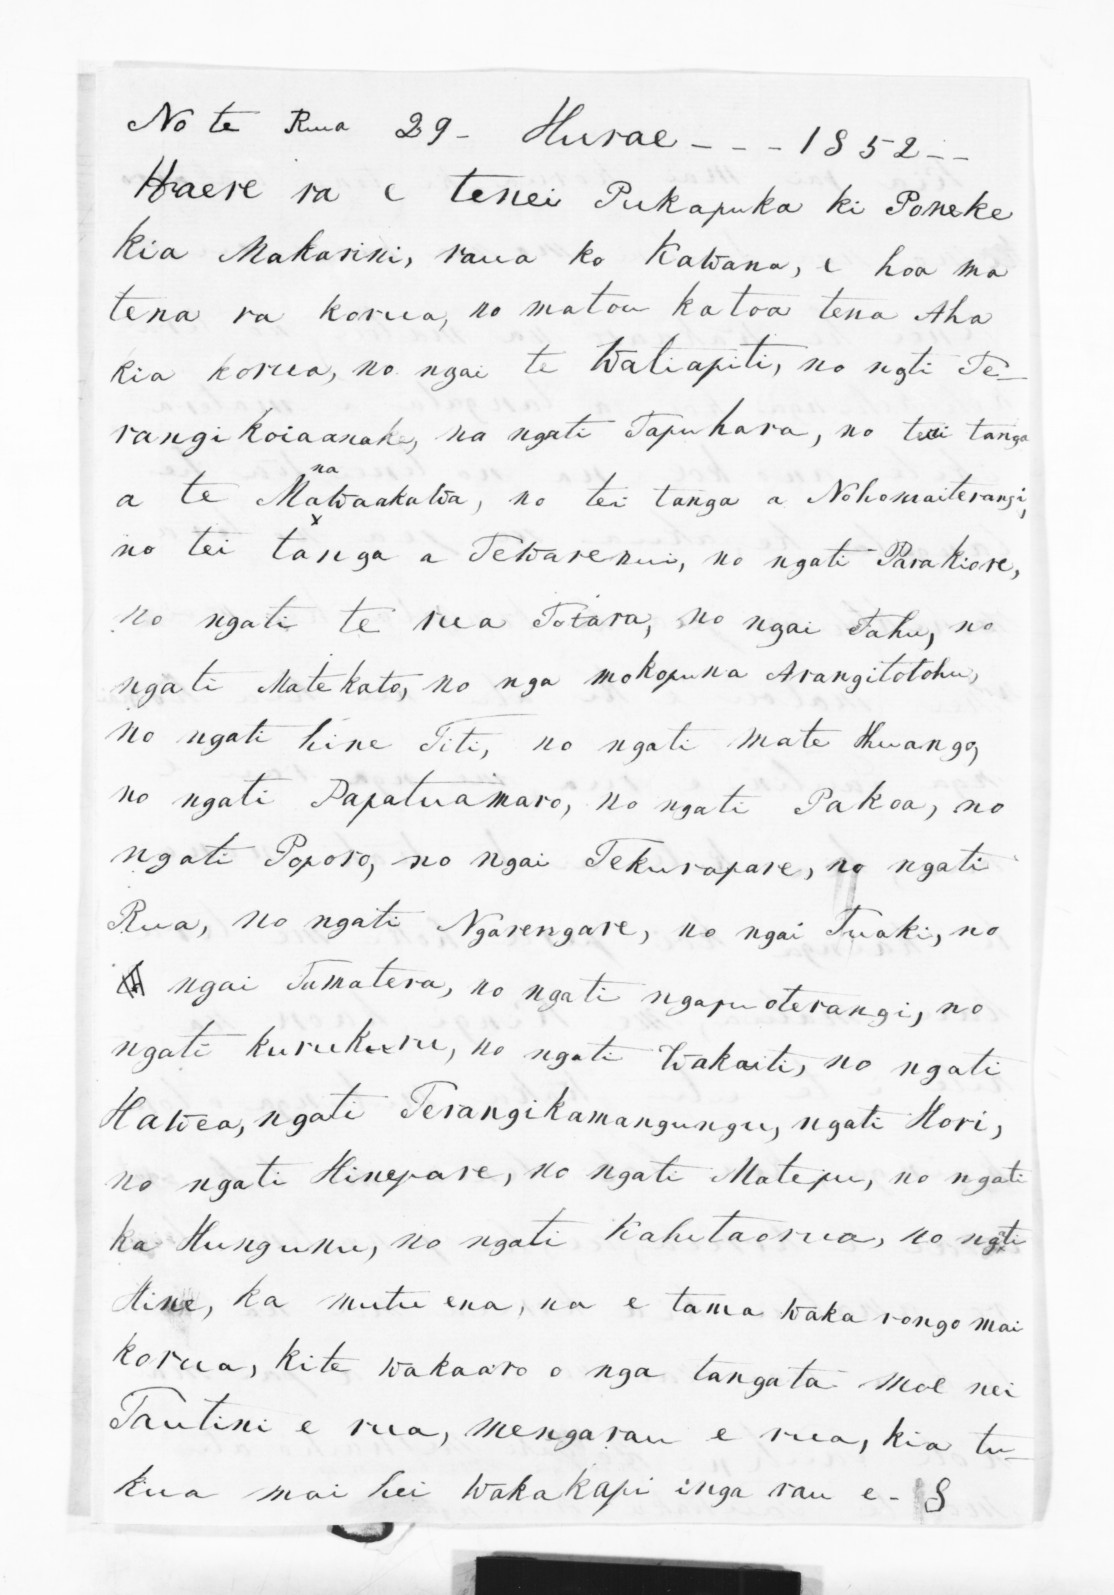 No te Rua 29 - Hurae - - - 1852 - -
Haere ra e tenei Pukapuka ki Poneke
kia Makarini, raua ko Kawana, e hoa ma
tena ra korua, no matou katoa tena Aha
kia korua, no ngai te Watiapiti, no ngti Te-
rangikoiaanake, na ngati Tapuhara, no tei tanga
a te Manawaakawa, no tei tanga a Nohomaiterangi,
no tei tanga a Tewarenui, no ngati Parakiore,
no ngati te rua Totara, no ngai Tahu, no
ngati Matekato, no nga mokopuna Arangitotohu,
no ngati hine Titi, no ngati mate Huango,
no ngati Papatuamaro, no ngati Pakoa, no
ngati Poporo, no ngai Tekurapare, no ngati
Rua, no ngati Ngarengare, no ngai Tuaki, no
ngai Tumatera, no ngati ngapuoterangi, no
ngati kurukuru, no ngati Wakaiti, no ngati
Hawea, ngati Terangikamangungu, ngati Hori,
no ngati Hinepare, no ngati Matepu, no ngati
ka Hungunu, no ngati Kahutaorua, no ngati
Hine, ka mutu ena, na e tama waka rongo mai
korua, kite wakaaro o nga tangata moe nei
Tautini e rua, mengarau e rua, kia tu-
kua mai hei wakakapi inga rau e - 8